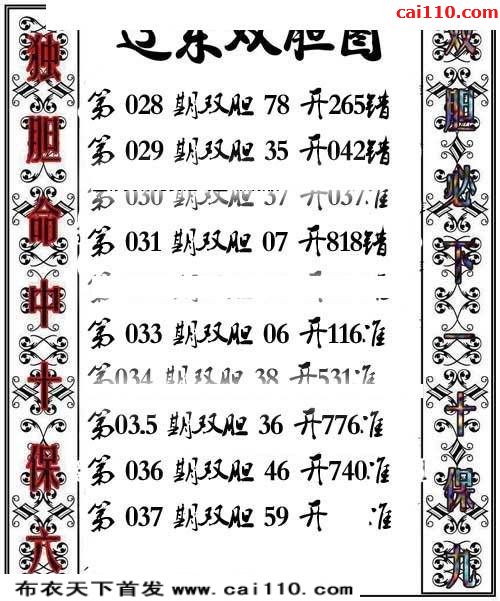 cai110.com
辽东双胆图
独胆命中十保六
双胆必下一十保九
第 028 期双胆 78 开265错
第 029 期双胆 35 开042错
第 030 期双胆 37 开037准
第 031 期双胆 07 开818错
第 033 期双胆 06 开116准
第034 期双胆 38 开531准
第03.5 期双胆 36 开776准
第 036 期双胆 46 开740准
第 037 期双胆 59 开 准
布衣天下首发 www.cai110.com